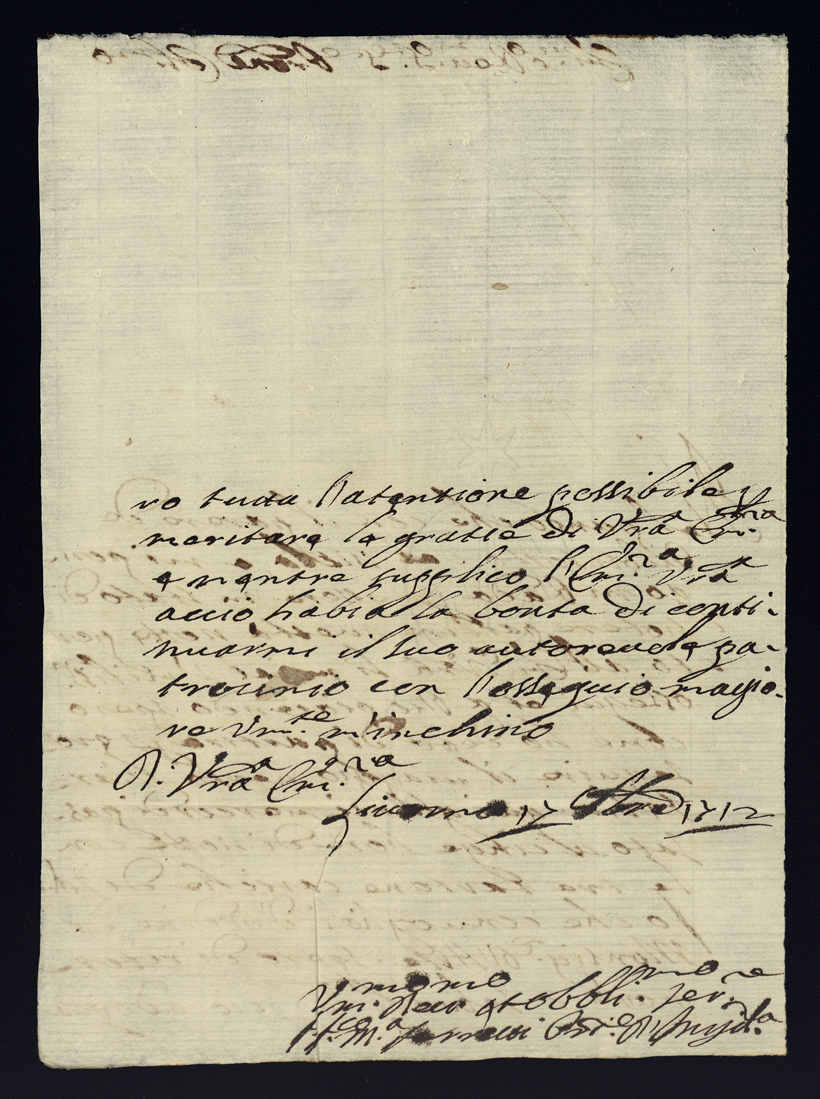 rò tutta l'atentione possibile p
meritare le gratie di Vrã Em.za
e mentre supplico l'Em.za Vrã
acciò habia la bontà di conti-
nuarmi il suo autorevole pa-
trocinio con l'ossequio magio-
re Vm.te m'inchino
D. Vrã Em.za
Livorno 17 1712
Vm.mo Dev.mo et obbli.mo ser.re